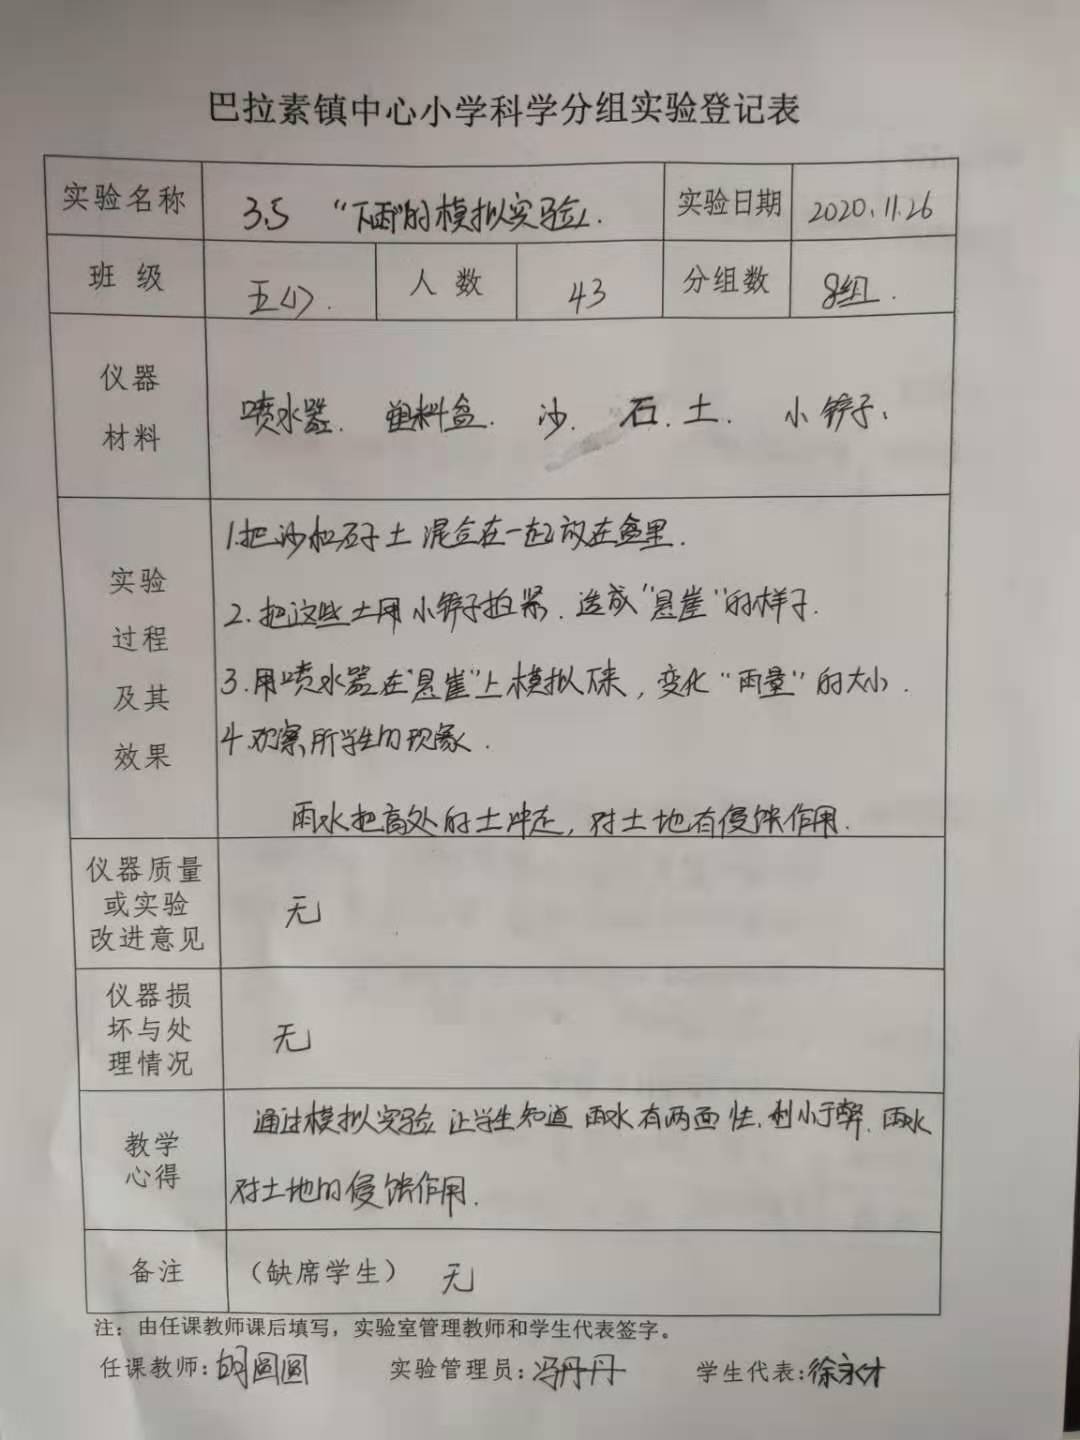 巴拉素镇中心小学科学分组实验登记表
实验名称 3.5 “下雨”的模拟实验. 实验日期 2020.11.26
班 级 五(1). 人 数 43 分组数 8组.
仪器
材料
喷水器. 塑料盒. 沙. 石. 土. 小铲子.
实验
过程
及其
效果
1.把沙和石子土混合在一起放在盒里.
2.把这些土用小铲子拍紧.造成“悬崖”的样子.
3.用喷水器在“悬崖”上模拟下来,变化“雨量”的大小.
4.观察所学生的现象.
雨水把高处的土冲走,对土地有侵蚀作用.
仪器质量
或实验
改进意见
无
仪器损
坏与处
理情况
无
教学
心得
通过模拟实验让学生知道雨水有两面性.利小于弊.雨水
对土地的侵蚀作用.
备注 (缺席学生) 无
注:由任课教师课后填写,实验室管理教师和学生代表签字。
任课教师:胡圆圆 实验管理员:冯丹丹 学生代表:徐永才